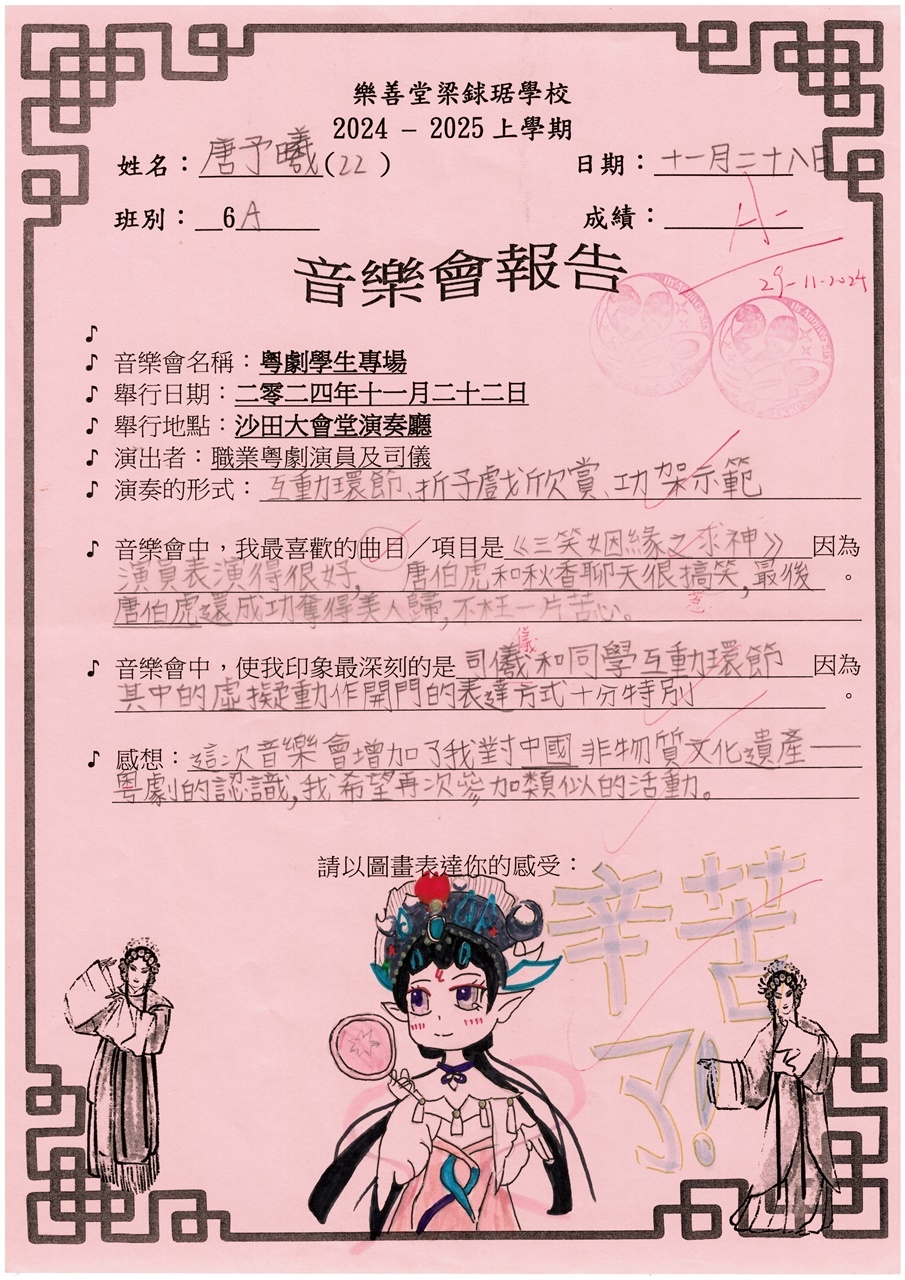 樂善堂梁銶琚學校
2024 – 2025 上學期
姓名：唐予曦(22) 日期：十一月二十八日
班別：6A 成績：A-
音樂會報告
29-11-2024
♪
♪ 音樂會名稱：粵劇學生專場
♪ 舉行日期：二零二四年十一月二十二日
♪ 舉行地點：沙田大會堂演奏廳
♪ 演出者：職業粵劇演員及司儀
♪ 演奏的形式：互動環節、折子戲欣賞、功架示範
♪ 音樂會中，我最喜歡的曲目／項目是《三笑姻緣之求神》因為
演員表演得很好， 唐伯虎和秋香聊天很搞笑，最後。
唐伯虎還成功奪得美人歸，不枉一片苦心。
儀
♪ 音樂會中，使我印象最深刻的是司儀和同學互動環節因為
其中的虛擬動作開門的表達方式十分特別。
♪ 感想：這次音樂會增加了我對中國非物質文化遺產——
粵劇的認識，我希望再次參加類似的活動。
請以圖畫表達你的感受：
辛苦
了！